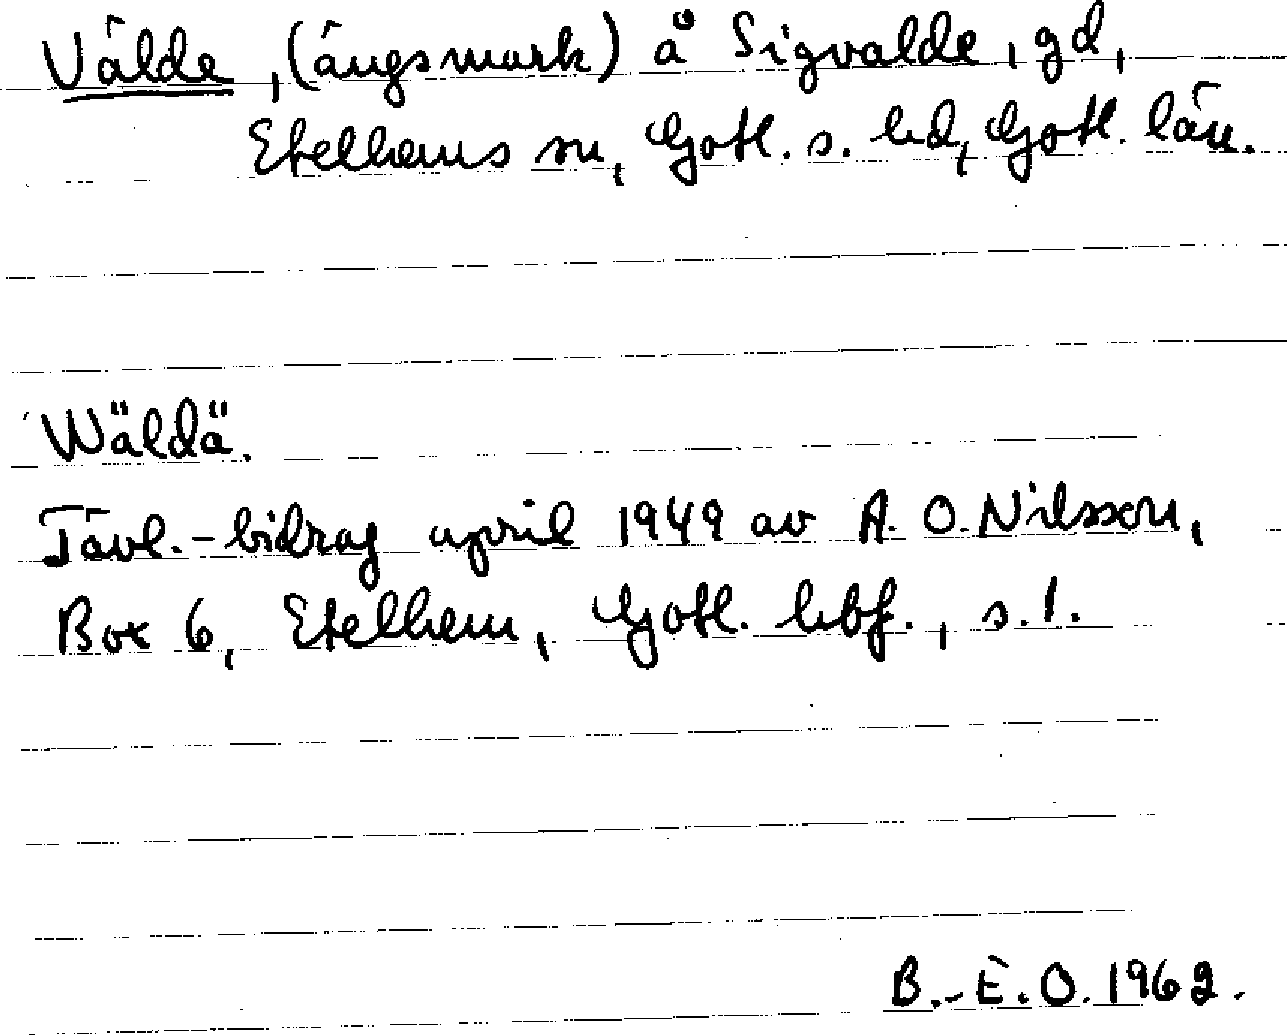 Välde, (ängsmark) å Sigvalde, gd,
Etelhems sn, Gotl. s. hd, Gotl. län.
Wäldä.
Tävl.-bidrag april 1949 av A. O. Nilsson,
Box 6, Etelhem, Gotl. hbf., s.1.
B.-E.O. 1962.